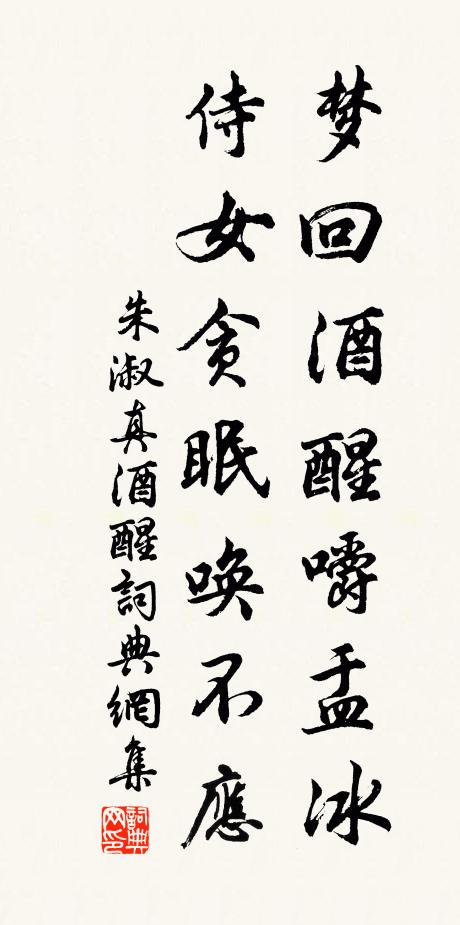 梦回酒醒嚼盂冰
侍女贪眠唤不應
朱淑真酒醒詞典網集
詞典網印